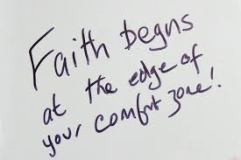 Faith begns
at the edge of
your comfrt zone!